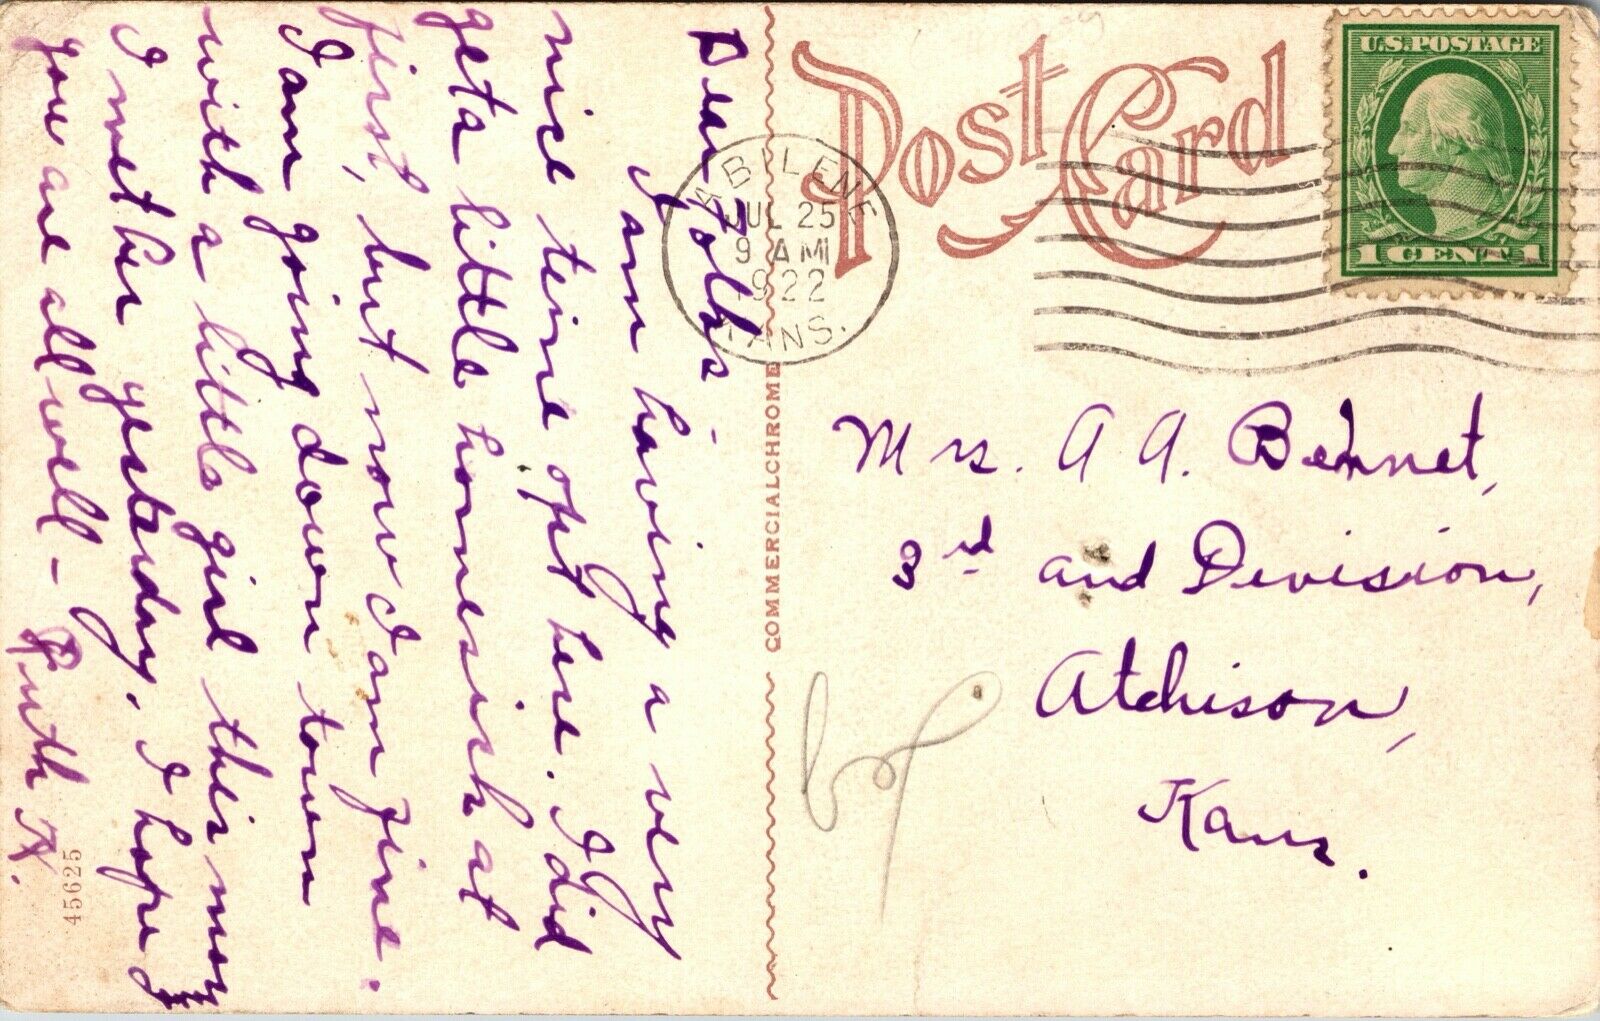 Dear Folks -
I am having a very
nice time opt here. I did
get a little homesick at
first, but now I am fine.
I am going down town
with a little girl this mor
I met her yesterday. I hope
you are all well -
Ruth H.
45625
COMMERCIALCHROME
Post Card
ABILENE
JUL 25
9 AM
1922
KANS.
U.S. POSTAGE
1 CENT 1
Mrs. A A. Bennet,
3rd and Division,
Atchison,
Kans.